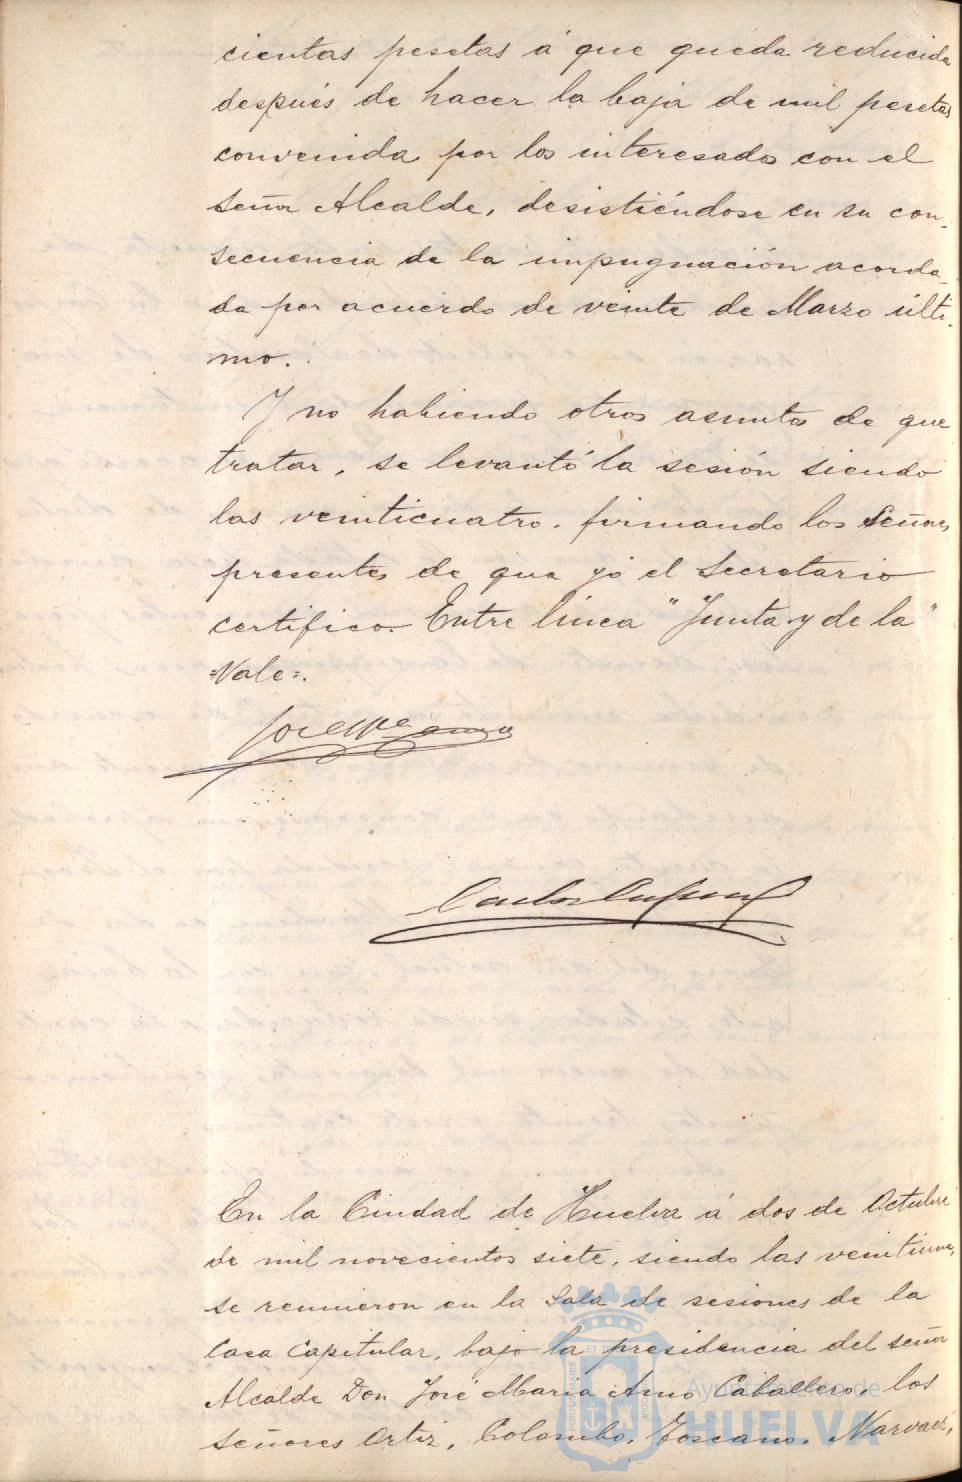 cientas pesetas á que queda reducida
después de hacer la baja de mil pesetas
convenida por los interesados con el
Señor Alcalde, desistiéndose en su con-
secuencia de la impugnación acorda-
da por acuerdo de veinte de Marzo últi-
mo.
Y no habiendo otros asuntos de que
tratar, se levantó la sesión siendo
las veinticuatro, firmando los Señores
presentes de que yó el Secretario
certifico. Entre línea "Junta y de la"
=Vale=.
En la Ciudad de Huelva á dos de Octubre
de mil novecientos siete, siendo las veintiuna,
se reunieron en la Sala de sesiones de la
Casa Capitular, bajo la presidencia del señor
Alcalde Don José María Amo Caballero, los
señores Ortiz, Colombo, Toscano, Narvaez,
Ayuntamiento de
HUELVA